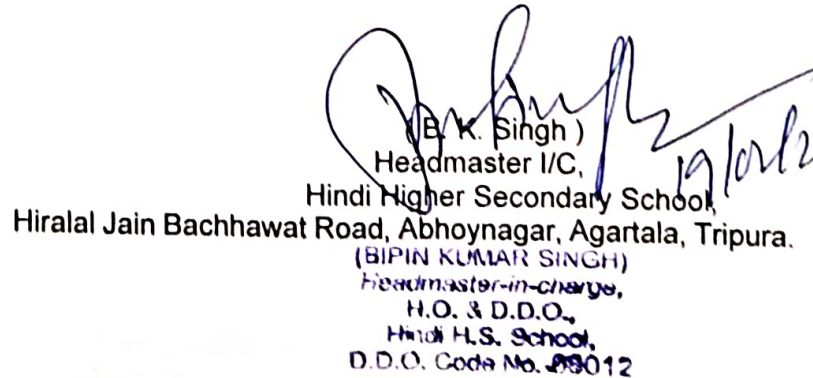 ( B. K. Singh )
Headmaster I/C,
Hindi Higher Secondary School,
Hiralal Jain Bachhawat Road, Abhoynagar, Agartala, Tripura.
(BIPIN KUMAR SINGH)
Headmaster-in-charge,
H.O. & D.D.O.,
Hindi H.S. School,
D.D.O. Code No.